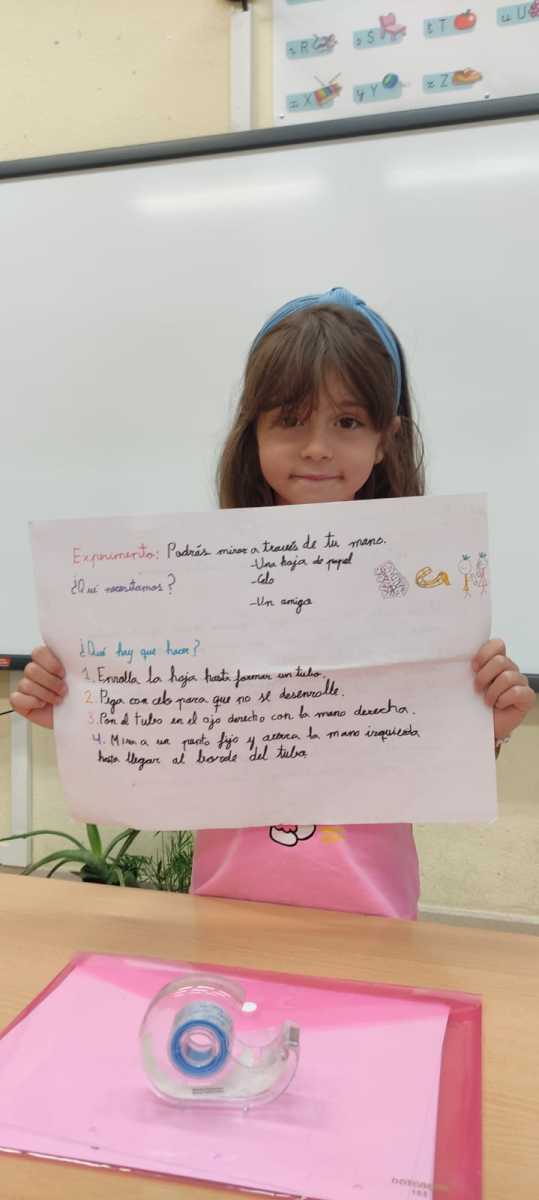 r R
s S
t T
u U
x X
y Y
z Z
Experimento: Podrás mirar a través de tu mano.
¿Qué necesitamos?
-Una hoja de papel
-Celo
-Un amigo
¿Qué hay que hacer?
1. Enrolla la hoja hasta formar un tubo.
2. Pega con celo para que no se desenrolle.
3. Pon el tubo en el ojo derecho con la mano derecha.
4. Mira a un punto fijo y acerca la mano izquierda
hasta llegar al borde del tubo.